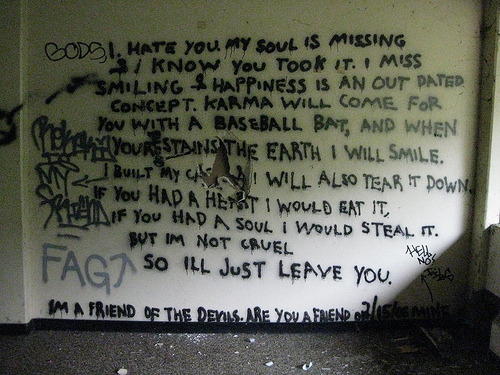 GODS I. HATE YOU. MY SOUL IS MISSING
& I KNOW YOU TOOK IT. I MISS
SMILING & HAPPINESS IS AN OUT DATED
CONCEPT. KARMA WILL COME FOR
YOU WITH A BASEBALL BAT, AND WHEN
YOUR STAINS THE EARTH I WILL SMILE.
I BUILT MY I WILL ALSO TEAR IT DOWN.
IF YOU HAD A HEART I WOULD EAT IT,
IF YOU HAD A SOUL I WOULD STEAL IT.
BUT IM NOT CRUEL
SO ILL JUST LEAVE YOU.
MY
FAG
HELL
NO
IM A FRIEND OF THE DEVILS. ARE YOU A FRIEND OF MINE